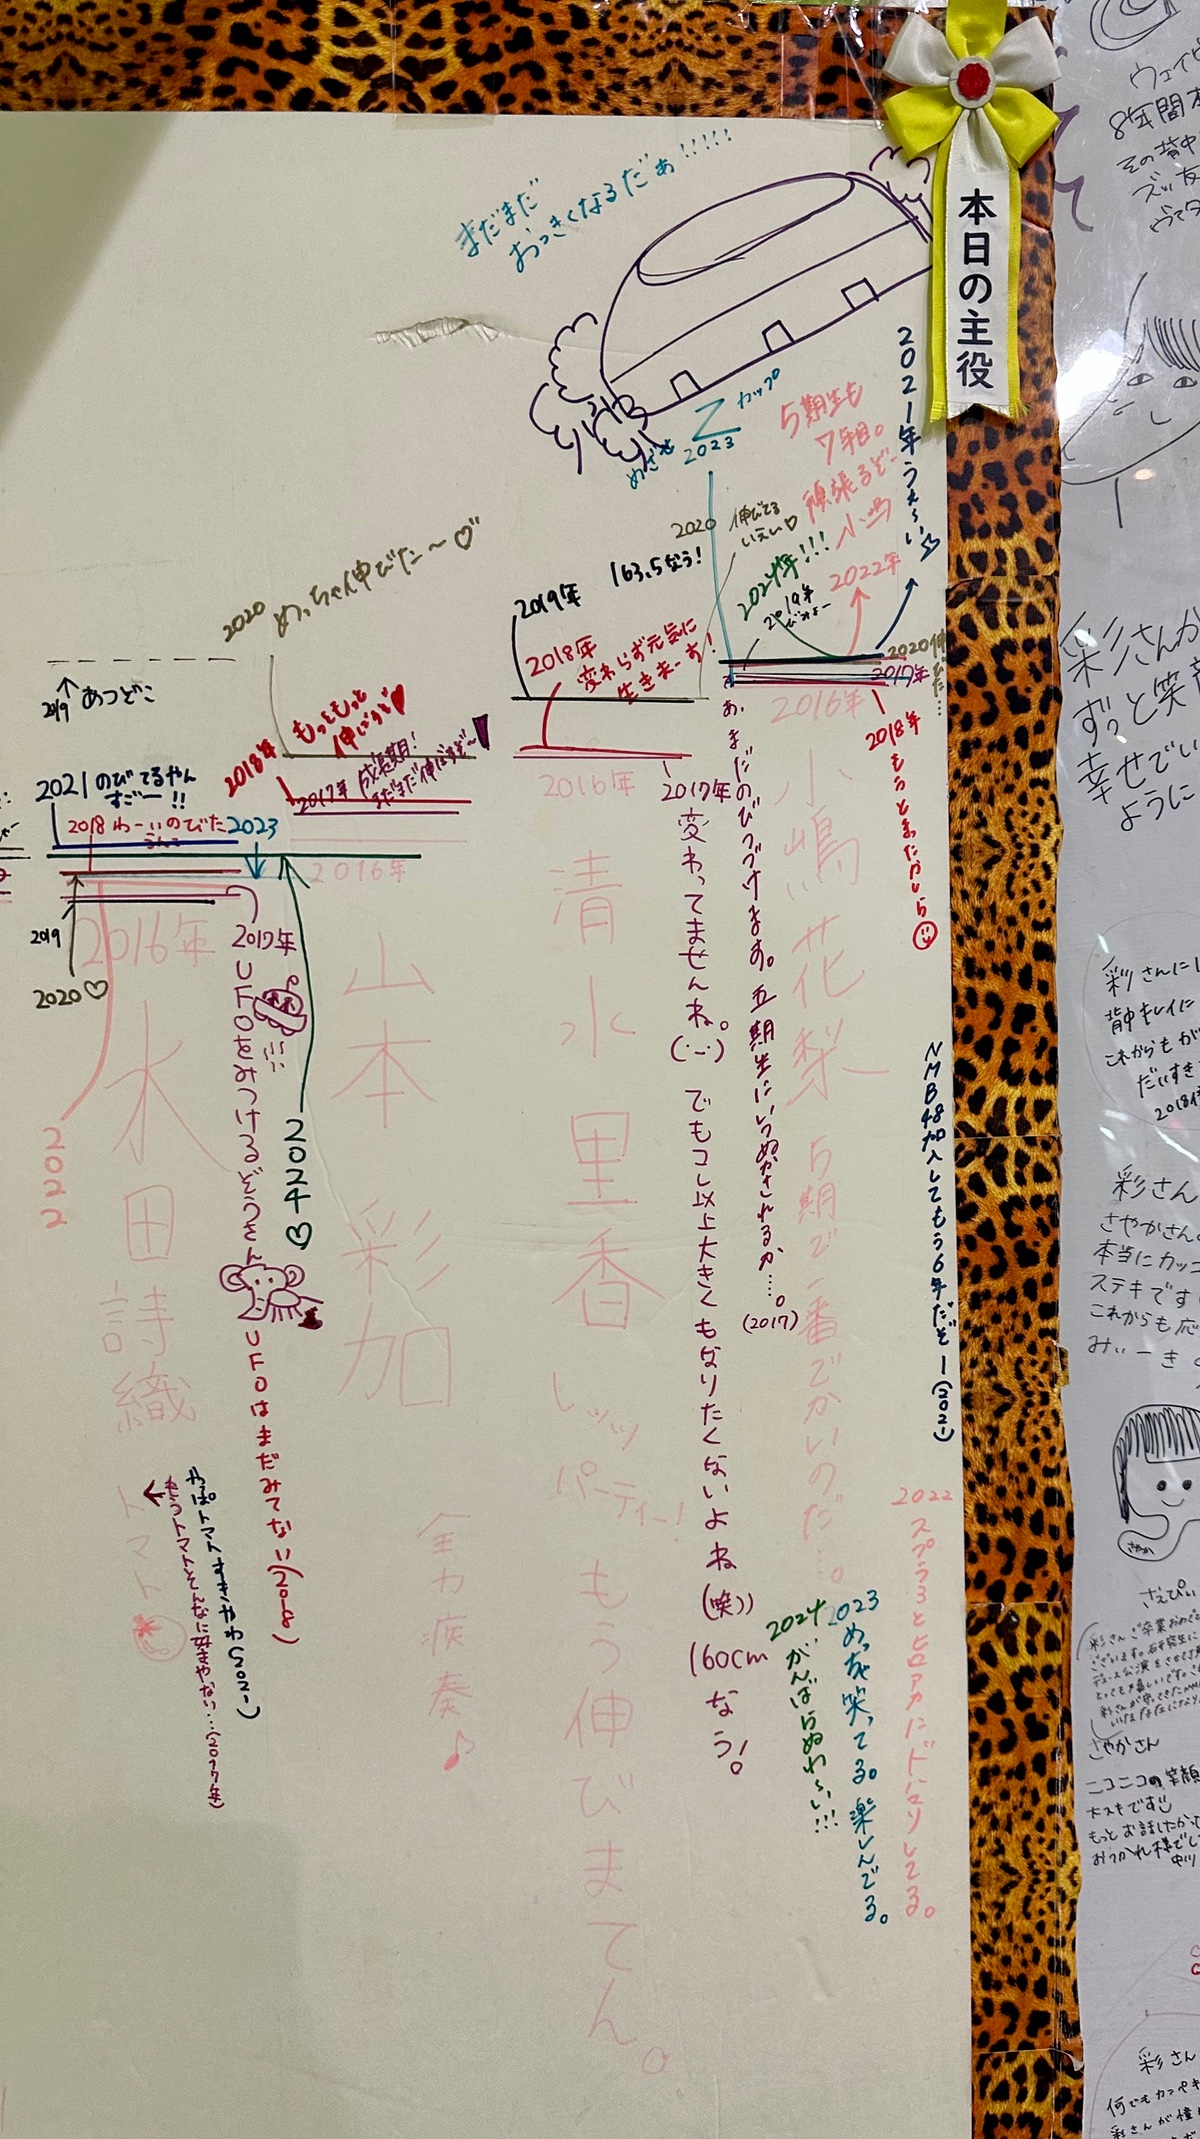 本日の主役
まだまだ
おっきくなるだぁ!!!!!
めざせ
Z カップ
2023
5期生も
7年目。
頑張るぞー
小嶋
2021年うぇーい
2020
伸びてる
いえい♡
163.5なう!
2024年!!!
2019年
2022年
2020
2017年
2016年
2018年 もうとまったかしら
小嶋花梨 5期で一番でかいのだ…。
あ、まだのびつづけます。五期生にいつぬかされるか…。
(2017)
NMB48加入してもう6年だぞー(2021)
2022 スプラ3とヒロアカにドハマりしてる。
2023 めっちゃ笑ってる。楽しんでる。
2024 がんばらぬわーい!!!
2019年
2018年
変わらず元気に
生きまーす!
2016年
2017年 変わってませんね。でもコレ以上大きくもなりたくないよね(笑))
160cmなう!
清水里香 レッツパーティー! もう伸びません。
2020 めっちゃ伸びた〜♡
2018年 もっともっと
伸びろぞ♥
2017年 成長期!
まだまだ伸びるぞ〜
2016年
山本彩加
全力疾奏♪
2019 あっどこ
2021 のびてるやん
すごー!!
2018 わーいのびた
2023
2019
2020♡
2016年
2017年
UFOをみつけるぞうさん
UFOはまだみてない(2018)
2024♡
2022
水田詩織
トマト
やっぱトマトすきやわ(2021)
もうトマトそんなに好きやない…(2017年)
8年間
その背中
彩さんが
ずっと笑顔
幸せでい
ように
彩さんに
背中もレイに
これからも
だいすき
2018
彩さん
さやかさん
本当にカッコ
ステキです
これからも応
みぃーき
さえぴぃ
彩さんご卒業おめでと
ございます。
さやかさん
ニコニコの笑顔
大スキです
もっとお話したかった
おつかれ様でし
彩さん
何でもカンペキ
彩さんが憧